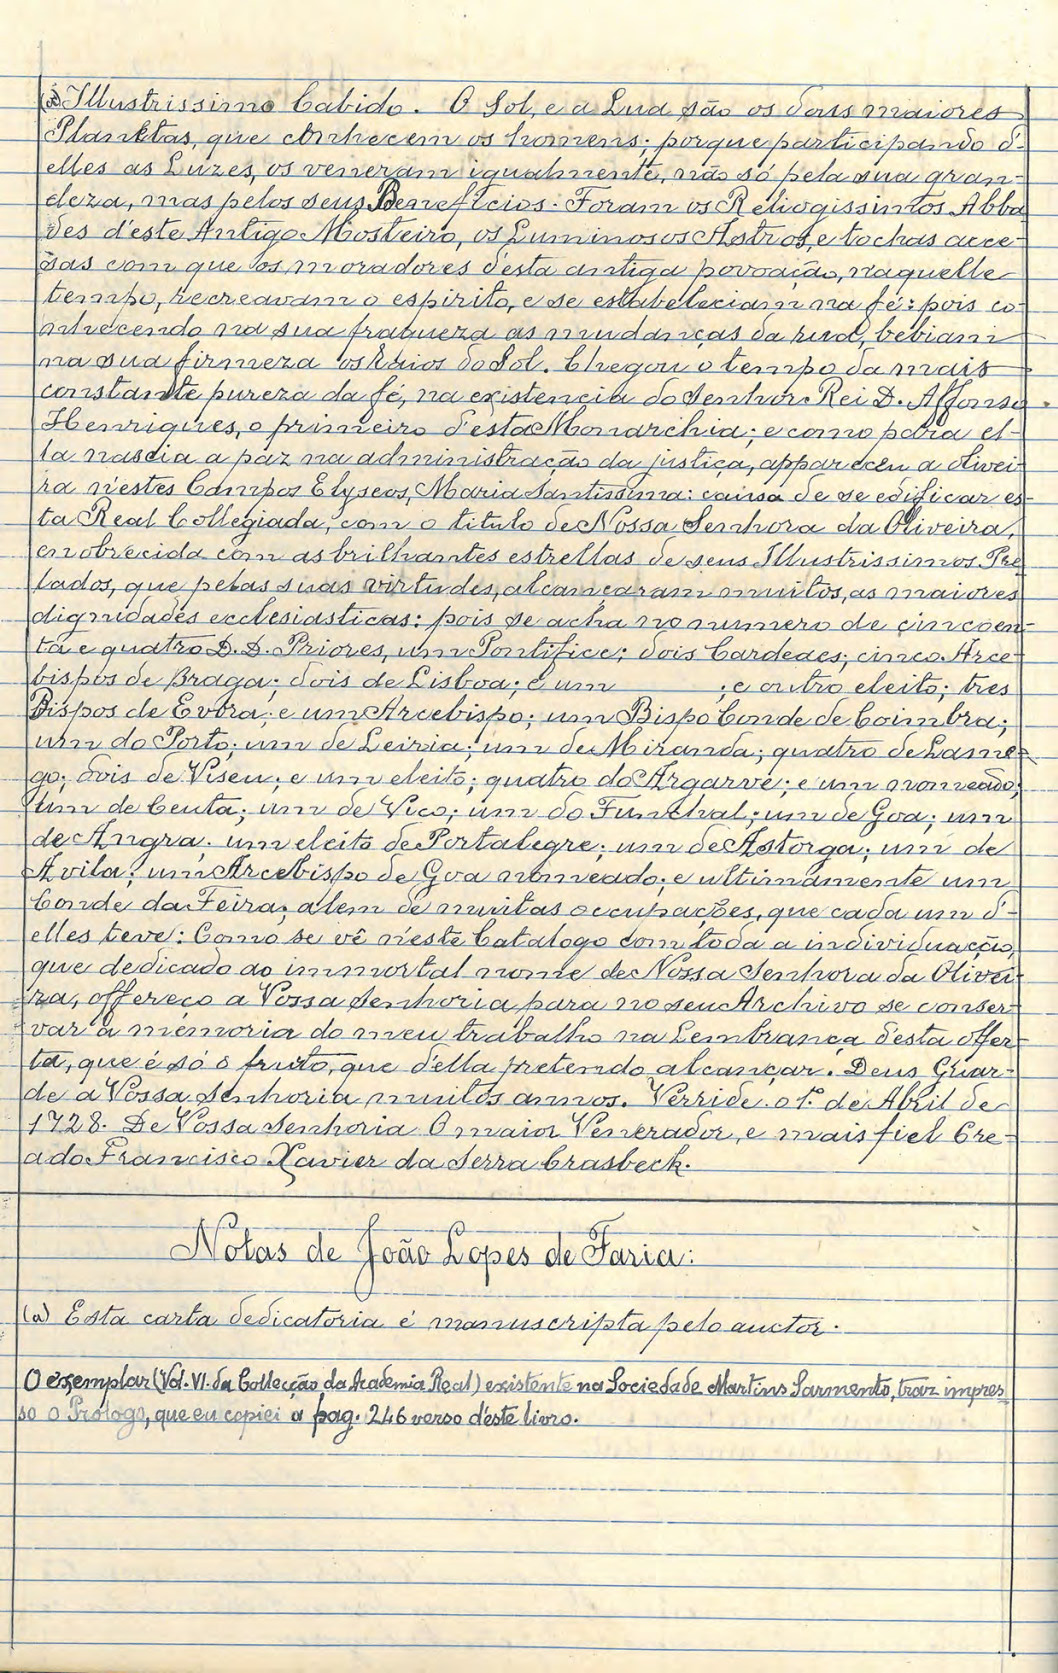 (a) Illustrissimo Cabido. O Sol, e a Lua são os dous maiores
Planetas, que conhecem os homens; porque participando d'-
elles as Luzes, os veneram igualmente, não só pela sua gran-
deza, mas pelos seus Beneficios. Foram os Religiosissimos Abba
des d'este Antigo Mosteiro, os Luminosos Astros, e tochas acce-
sas com que os moradores d'esta antiga povoação, naquelle
tempo, recreavam o espirito, e se estabeleciam na fé: pois co-
nhecendo na sua fraqueza as mudanças da Lua, bebiam
na sua firmeza os raios do Sol. Chegou o tempo da mais
constante pureza da fé, na existencia do Senhor Rei D. Affonso
Henriques, o primeiro d'esta Monarchia; e como para el-
la nascia a paz na administração da justiça, appareceu a olivei
ra n'estes Campos Elyseos, Maria Santissima: causa de se edificar es-
ta Real Collegiada, com o titulo de Nossa Senhora da Oliveira,
ennobrecida com as brilhantes estrellas de seus Illustrissimos Pre
lados, que pelas suas virtudes, alcançaram muitos, as maiores
dignidades ecclesiasticas: pois se acha no numero de cincoen-
ta e quatro D. D. Priores, um Pontifice; dois Cardeaes; cinco Arce-
bispos de Braga; dois de Lisboa; e um ; e outro eleito; tres
Bispos de Evora; e um Arcebispo; um Bispo Conde de Coimbra;
um do Porto; um de Leiria; um de Miranda; quatro de Lame-
go; dois de Viseu; e um eleito; quatro do Argarve; e um nomeado;
um de Ceuta; um de Vico; um do Funchal; um de Goa; um
de Angra; um eleito de Portalegre; um de Astorga; um de
Avila; um Arcebispo de Goa nomeado; e ultimamente um
Conde da Feira; alem de muitas occupações, que cada um d'-
elles teve: Como se vê n'este Catalogo com toda a individuação,
que dedicado ao immortal nome de Nossa Senhora da Olivei-
ra, offereço a Vossa Senhoria, para no seu Archivo se conser-
var a memoria do meu trabalho na Lembrança d'esta offer-
ta, que é só o fruto, que d'ella pretendo alcançar. Deus Guar-
de a Vossa Senhoria muitos annos. Verride. o 1º de Abril de
1728. De Vossa Senhoria O maior Venerador, e mais fiel Cre-
ado Francisco Xavier da Serra Crasbeck.
Notas de João Lopes de Faria:
(a) Esta carta dedicatoria é manuscripta pelo auctor.
O exemplar (Vol. VI. da Collecção da Academia Real) existente na Sociedade Martins Sarmento, traz impres-
so o Prologo, que eu copiei a pag. 246 verso d'este livro.